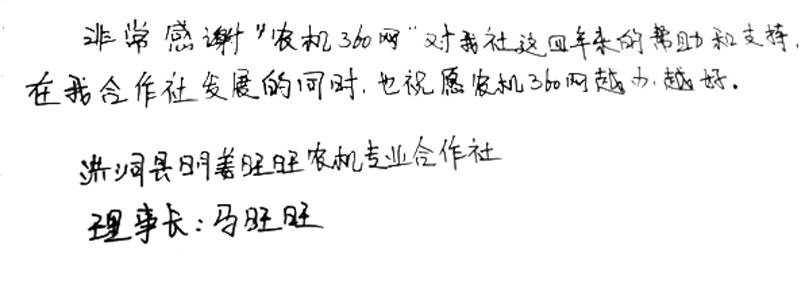 非常感谢"农机360网"对我社这四年来的帮助和支持,
在我合作社发展的同时,也祝愿农机360网越办越好。
洪洞县明姜旺旺农机专业合作社
理事长:马旺旺